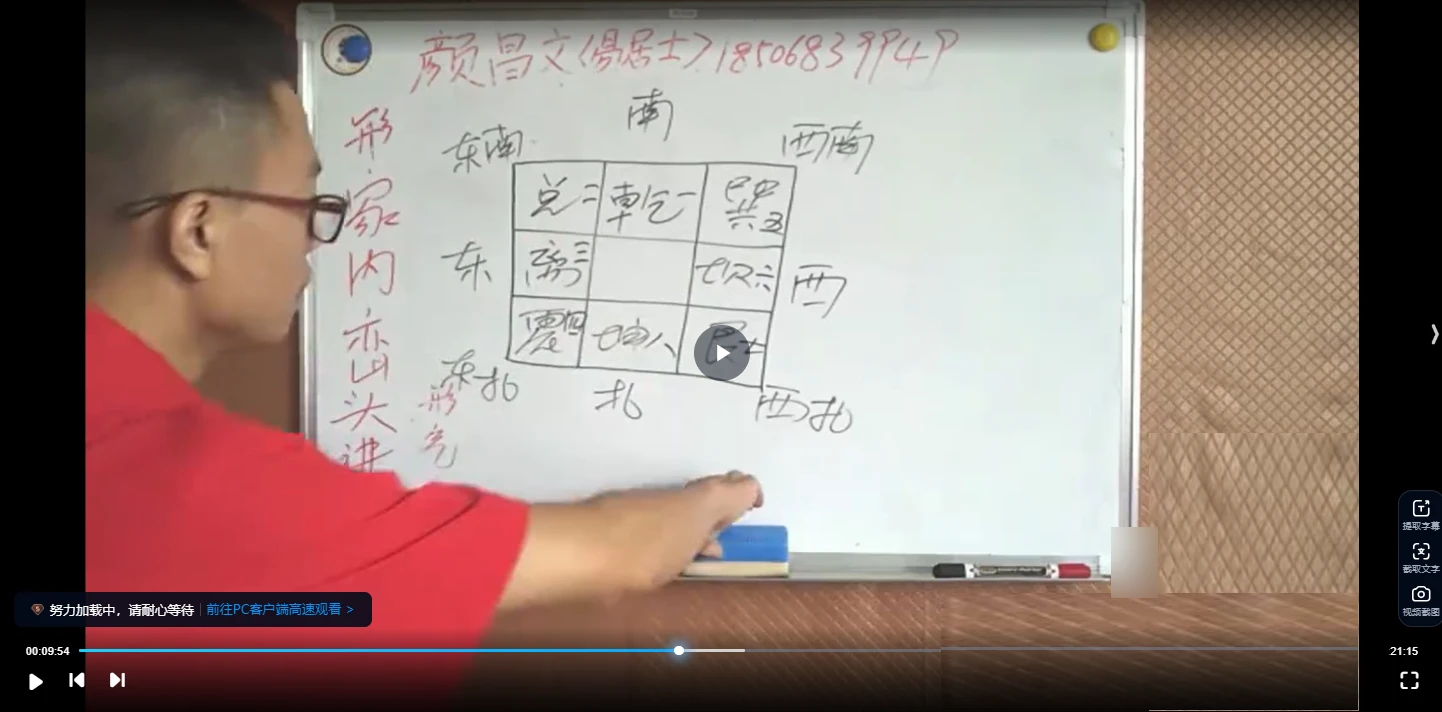 颜昌文(易居士)18506839949
形家内峦头进
形气
南
东南 西南
兑二 乾一 巽五
东 离三 坎六 西
震四 坤八 艮七
东北 北 西北
提取字幕
截取文字
视频截图
努力加载中，请耐心等待 前往PC客户端高速观看 >
00:09:54
21:15